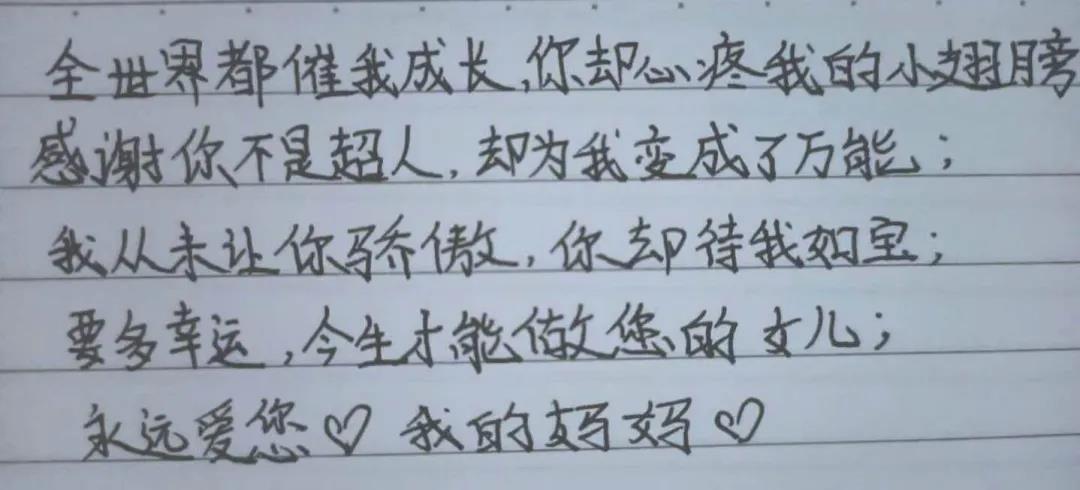 全世界都催我成长,你却心疼我的小翅膀
感谢你不是超人,却为我变成了万能;
我从未让你骄傲,你却待我如宝;
要多幸运,今生才能做您的女儿;
永远爱您♡ 我的妈妈♡